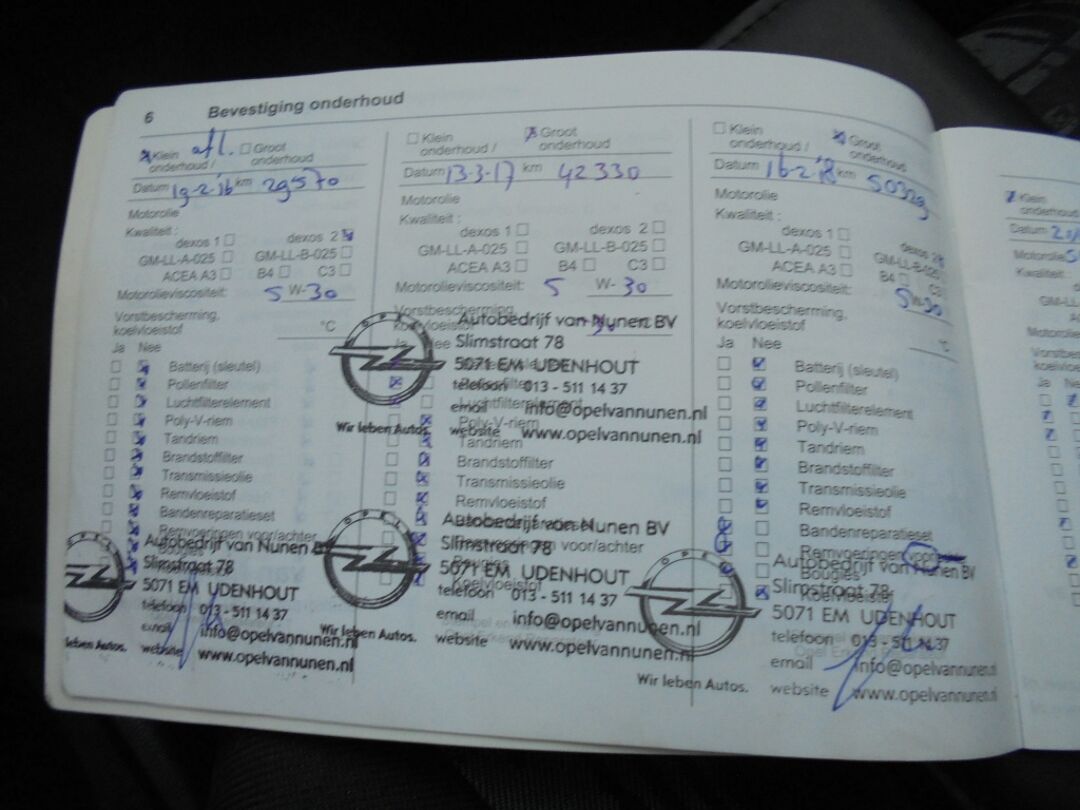 6 Bevestiging onderhoud
Klein onderhoud / afl. Groot onderhoud
Datum 19-2-'16 km 29570
Motorolie
Kwaliteit :
dexos 1 dexos 2
GM-LL-A-025 GM-LL-B-025
ACEA A3 B4 C3
Motorolieviscositeit: 5 W-30
Vorstbescherming,
koelvloeistof °C
Ja Nee
Batterij (sleutel)
Pollenfilter
Luchtfilterelement
Poly-V-riem
Tandriem
Brandstoffilter
Transmissieolie
Remvloeistof
Bandenreparatieset
Remvoeringen voor/achter
Bougies
OPEL
Autobedrijf van Nunen B
Slimstraat 78
5071 EM UDENHOUT
telefoon 013 - 511 14 37
email info@opelvannunen.nl
leben Autos. website www.opelvannunen.nl
Klein onderhoud / Groot onderhoud
Datum 13-3-17 km 42330
Motorolie
Kwaliteit :
dexos 1 dexos 2
GM-LL-A-025 GM-LL-B-025
ACEA A3 B4 C3
Motorolieviscositeit: 5 W-30
Vorstbescherming,
koelvloeistof
OPEL
Autobedrijf van Nunen BV
Slimstraat 78
5071 EM UDENHOUT
telefoon 013 - 511 14 37
email info@opelvannunen.nl
Wir leben Autos. website www.opelvannunen.nl
Ja Nee
Pollenfilter
Luchtfilterelement
Poly-V-riem
Tandriem
Brandstoffilter
Transmissieolie
Remvloeistof
voor/achter
Koelvloeistof
OPEL
Autobedrijf van Nunen BV
Slimstraat 78
5071 EM UDENHOUT
telefoon 013 - 511 14 37
email info@opelvannunen.nl
Wir leben Autos. website www.opelvannunen.nl
Klein onderhoud / Groot onderhoud
Datum 16-2-'18 km 50329
Motorolie
Kwaliteit :
dexos 1 dexos 2
GM-LL-A-025 GM-LL-B-025
ACEA A3 B4 C3
Motorolieviscositeit: 5W-30
Vorstbescherming,
koelvloeistof °C
Ja Nee
Batterij (sleutel)
Pollenfilter
Luchtfilterelement
Poly-V-riem
Tandriem
Brandstoffilter
Transmissieolie
Remvloeistof
Bandenreparatieset
Remvoeringen voor
Bougies
Koelvloeistof
OPEL
Autobedrijf van Nunen BV
Slimstraat 78
5071 EM UDENHOUT
telefoon 013 - 511 14 37
email info@opelvannunen.nl
Wir leben Autos. website www.opelvannunen.nl
Klein
onderhoud
Datum
Motorolie
Kwaliteit :
GM-LL
AC
Motorolie
Vorstbes
koelvloe
Ja Ne